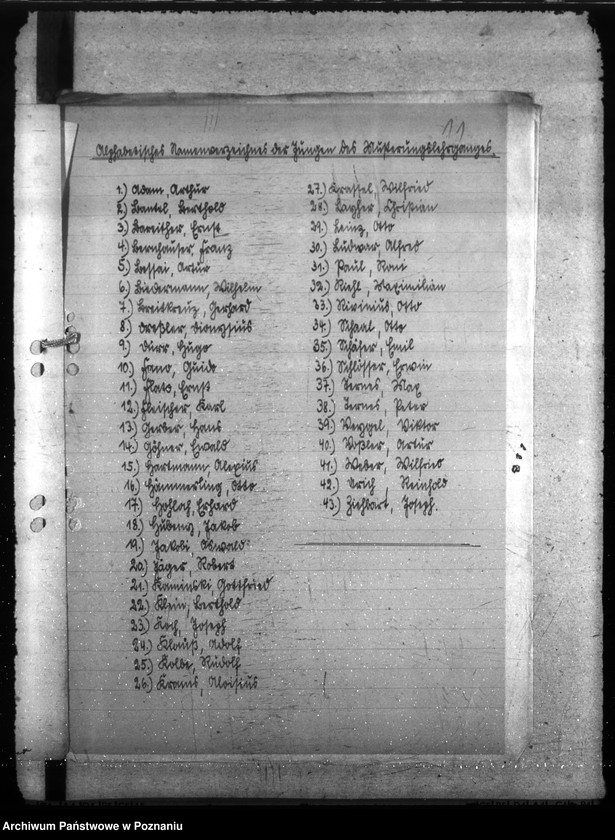 11.
Alphabetisches Namenverzeichnes der Jungen des Musterungslehrganges.
1.) Adam, Arthur
2.) Bantel, Berthold
3.) Bareither, Ernst
4.) Bernhauser, Franz
5.) Bessai, Artur
6.) Biedermann, Wilhelm
7.) Breitkreuz, Gerhard
8.) Dreßler, Dionysius
9.) Dürr, Hugo
10.) Fano, Guido
11.) Flato, Ernst
12.) Fleischer, Karl
13.) Gerber, Hans
14.) Göhner, Ewald
15.) Hartmann, Alexius
16.) Hämmerling, Otto
17.) Hohloch, Erhard
18.) Jakob
19.) Jakobi, Oswald
20.) Jäger, Robert
21.) Kaminski, Gottfried
22.) Klein, Berthold
23.) Koch, Joseph
24.) Klauß, Adolf
25.) Kolbe, Rudolf
26.) Krams, Aloisius
27.) Wilfried
28.) Layher, Christian
29.) Leinz, Otto
30.) Ludwar, Alfred
31.) Paul,
32.) Riehl, Maximilian
33.) Rivinius, Otto
34.) Schaal, Otto
35.) Schäfer, Emil
36.) Schlösser, Erwin
37.) Ternes, Max
38.) Ternes, Peter
39.) Veygel, Viktor
40.) Voßler, Artur
41.) Weber, Wilfried
42.) Reinhold
43.) Ziehbart, Joseph.
Archiwum Państwowe w Poznaniu